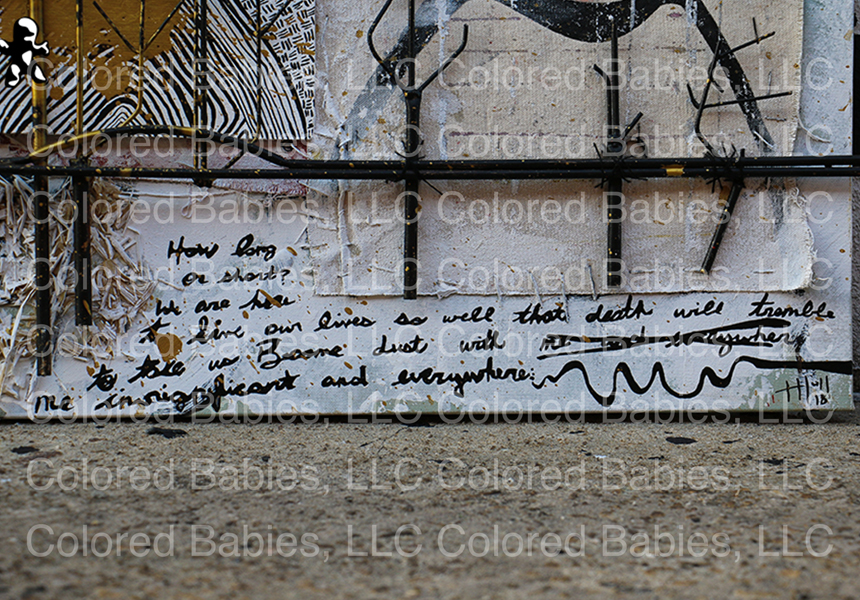 Colored Babies, LLC Colored Babies, LLC
Colored Babies, LLC Colored Babies, LLC
Colored Babies, LLC Colored Babies, LLC
How long
or short?
We are here
to live our lives so well that death will tremble
to take us Become dust with me and everywhere
me insignificant and everywhere.
HH '11
18
Colored Babies, LLC Colored Babies, LLC
Colored Babies, LLC Colored Babies, LLC
Colored Babies, LLC Colored Babies, LLC
Colored Babies, LLC Colored Babies, LLC